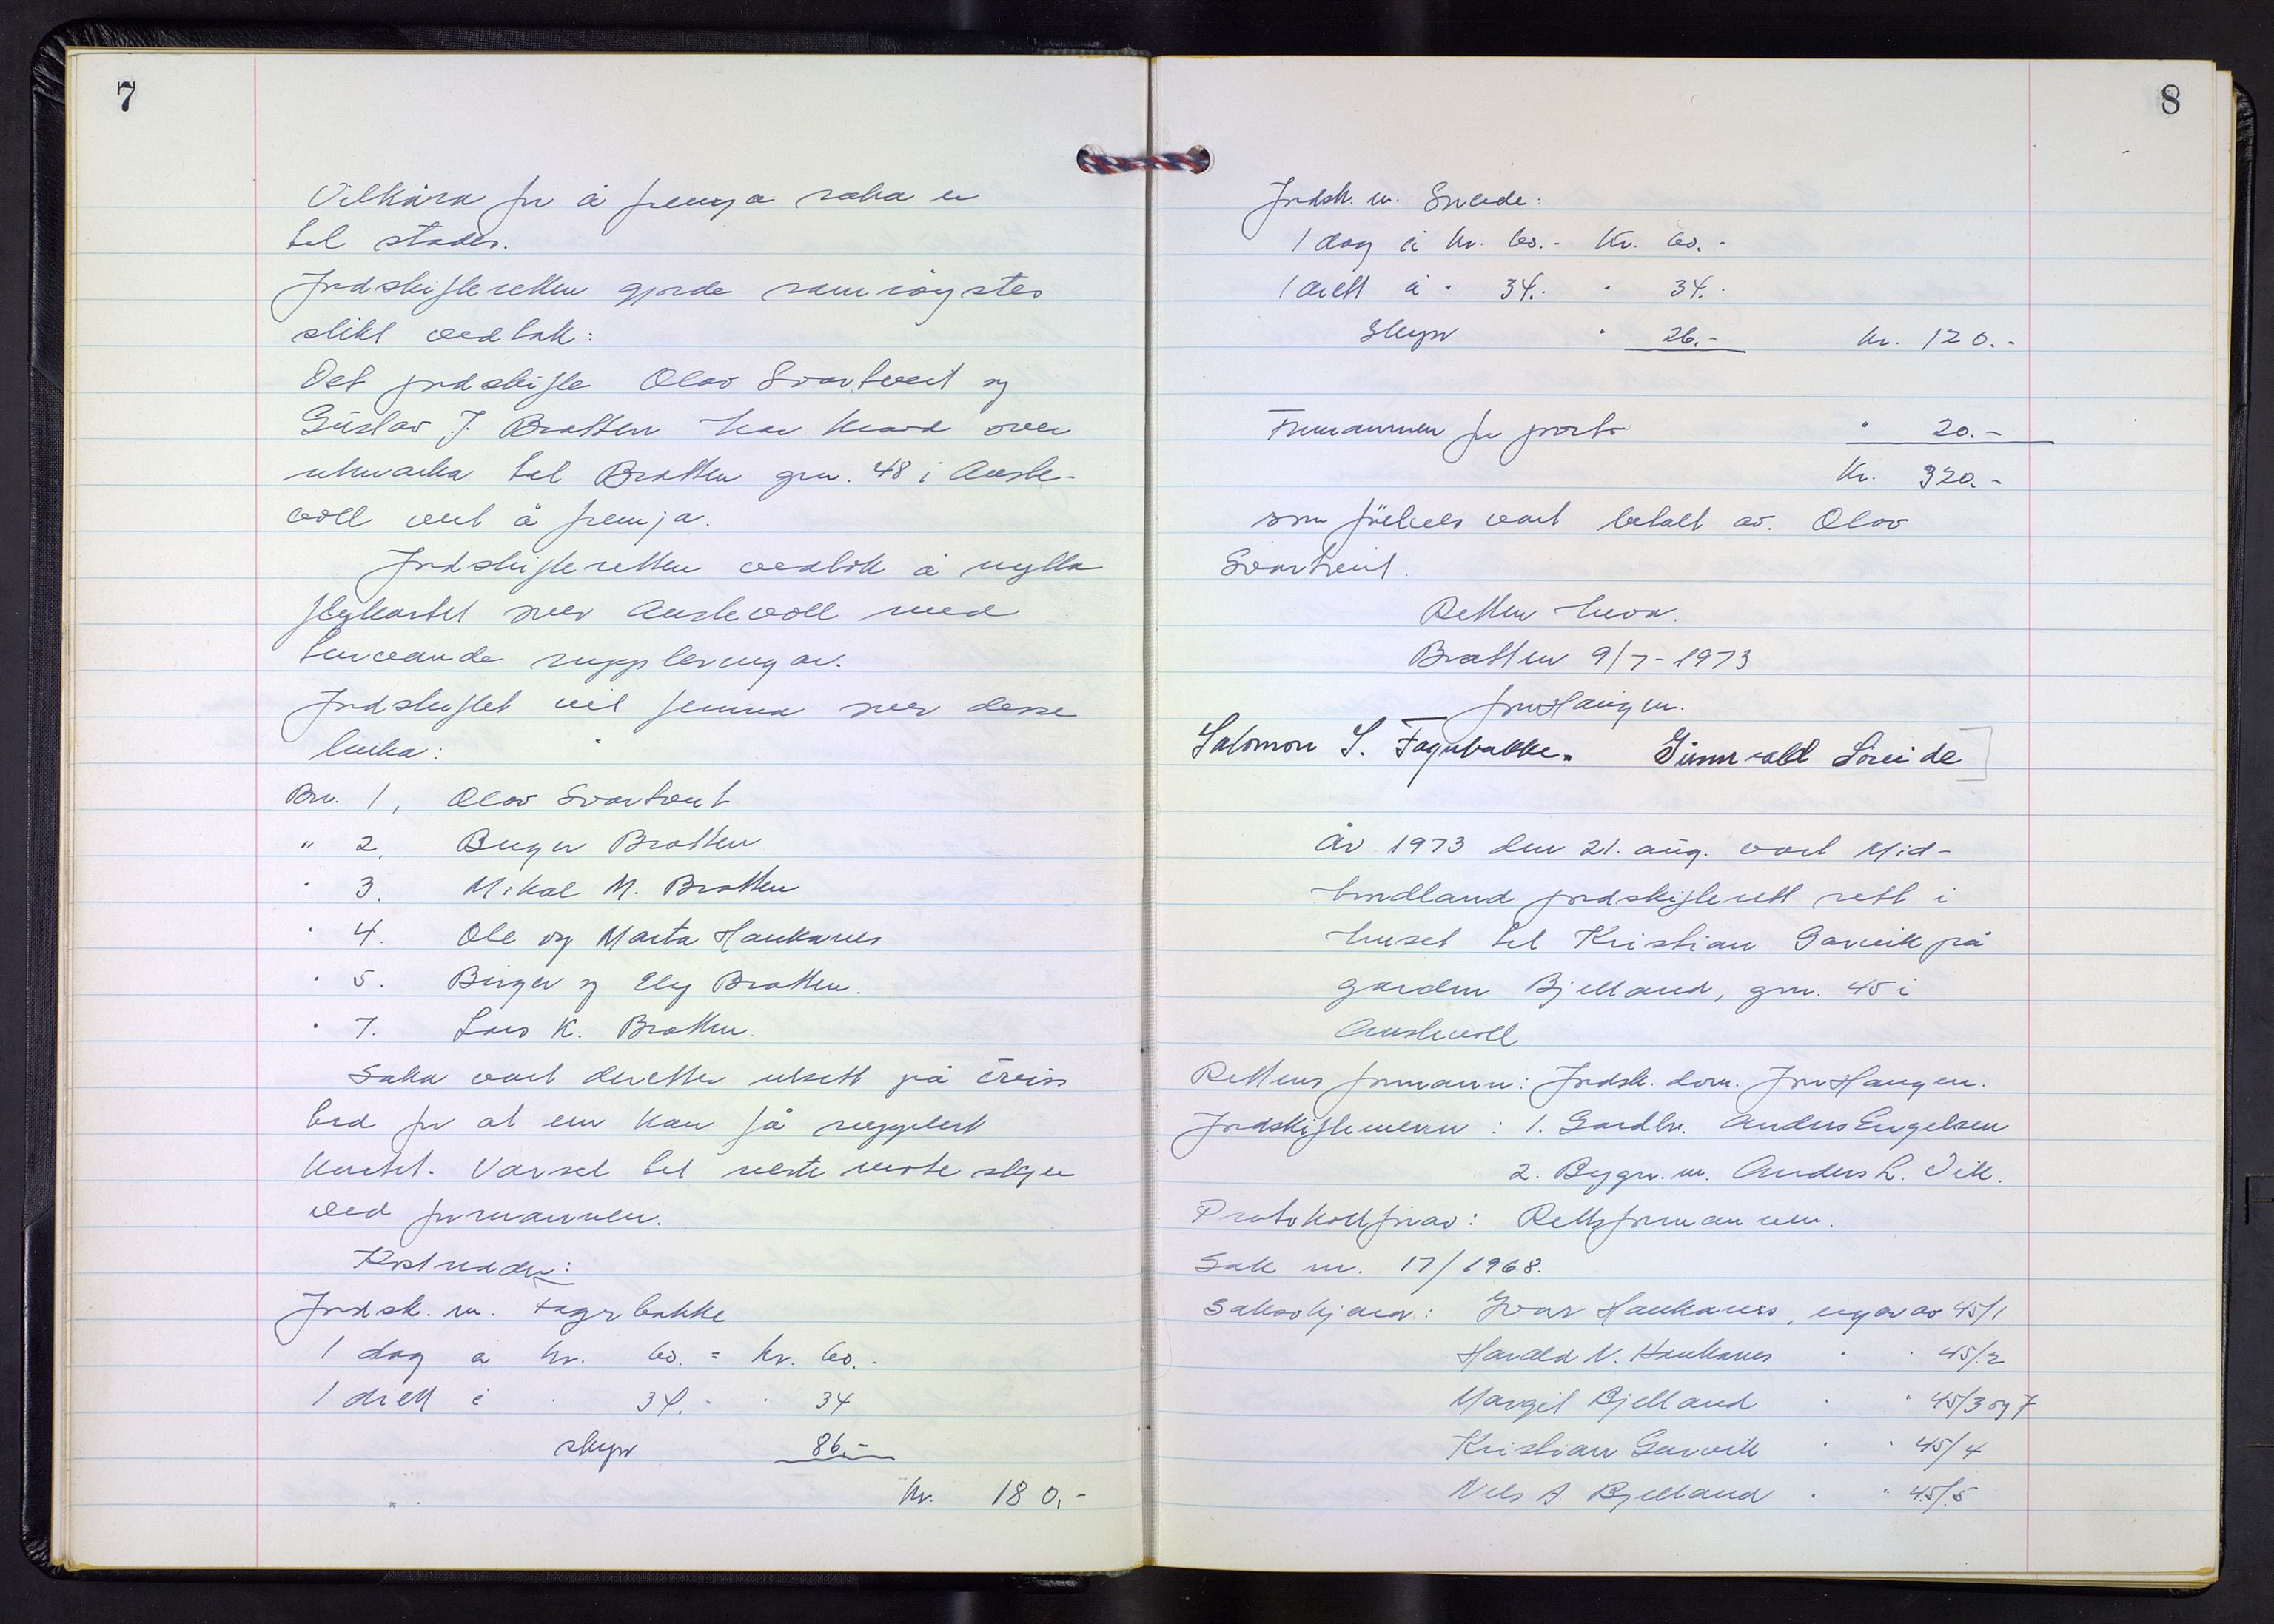 7
Vilkåra for å fremja saka er
til stades.
Jordskifteretten gjorde samrøystes
slikt vedtak:
Det jordskifte Olav Svartveit og
Gustav J. Bratten har kravd over
utmarka til Bratten gnr. 48 i Auste-
voll vert å fremja.
Jordskifteretten vedtok å nytta
flykartet over Austevoll med
turvande suppleringar.
Jordskiftet vil femna over desse
bruka:
Bnr. 1, Olav Svartveit
" 2. Birger Bratten
" 3. Mikal M. Bratten
" 4. Ole og Marta Haukanes
" 5. Birger og Elly Bratten.
" 7. Lars K. Bratten.
Saka vart deretter utsett på uviss
tid for at ein kan få supplert
kartet. Varsel til neste møte skjer
ved formannen.
Kostnader:
Jordsk. m. Fagerbakke
1 dag a kr. 60.- kr. 60.-
1 diett a " 34.- " 34
skyss 86.-
kr. 180.-
8
Jordsk. m. Søreide:
1 dag á kr. 60.- Kr. 60.-
1 diett á " 34.- " 34.-
Skyss " 26.- kr. 120.-
Formannen for porto " 20.-
Kr. 320.-
som förebels vart betalt av Olav
Svartveit.
Retten heva.
Bratten 9/7-1973
Jon Haugen.
Salomon S. Fagerbakke. Gunnvald Søreide
År 1973 den 21. aug. vart Mid-
hordland jordskifterett sett i
huset til Kristian Garvik på
garden Bjelland, gnr. 45 i
Austevoll
Rettens formann: Jordsk. dom. Jon Haugen.
Jordskiftemenn: 1. Gardbr. Anders Engelsen
2. Byggm. Anders L. Vik.
Protokollførar: Rettsformannen.
Sak nr. 17/1968.
Saksøkjarar: Ivar Haukanes, eigar av 45/1
Harald N. Haukanes " " 45/2
Margit Bjelland " " 45/3 og 7
Kristian Garvik " " 45/4
Nils A. Bjelland " " 45/5